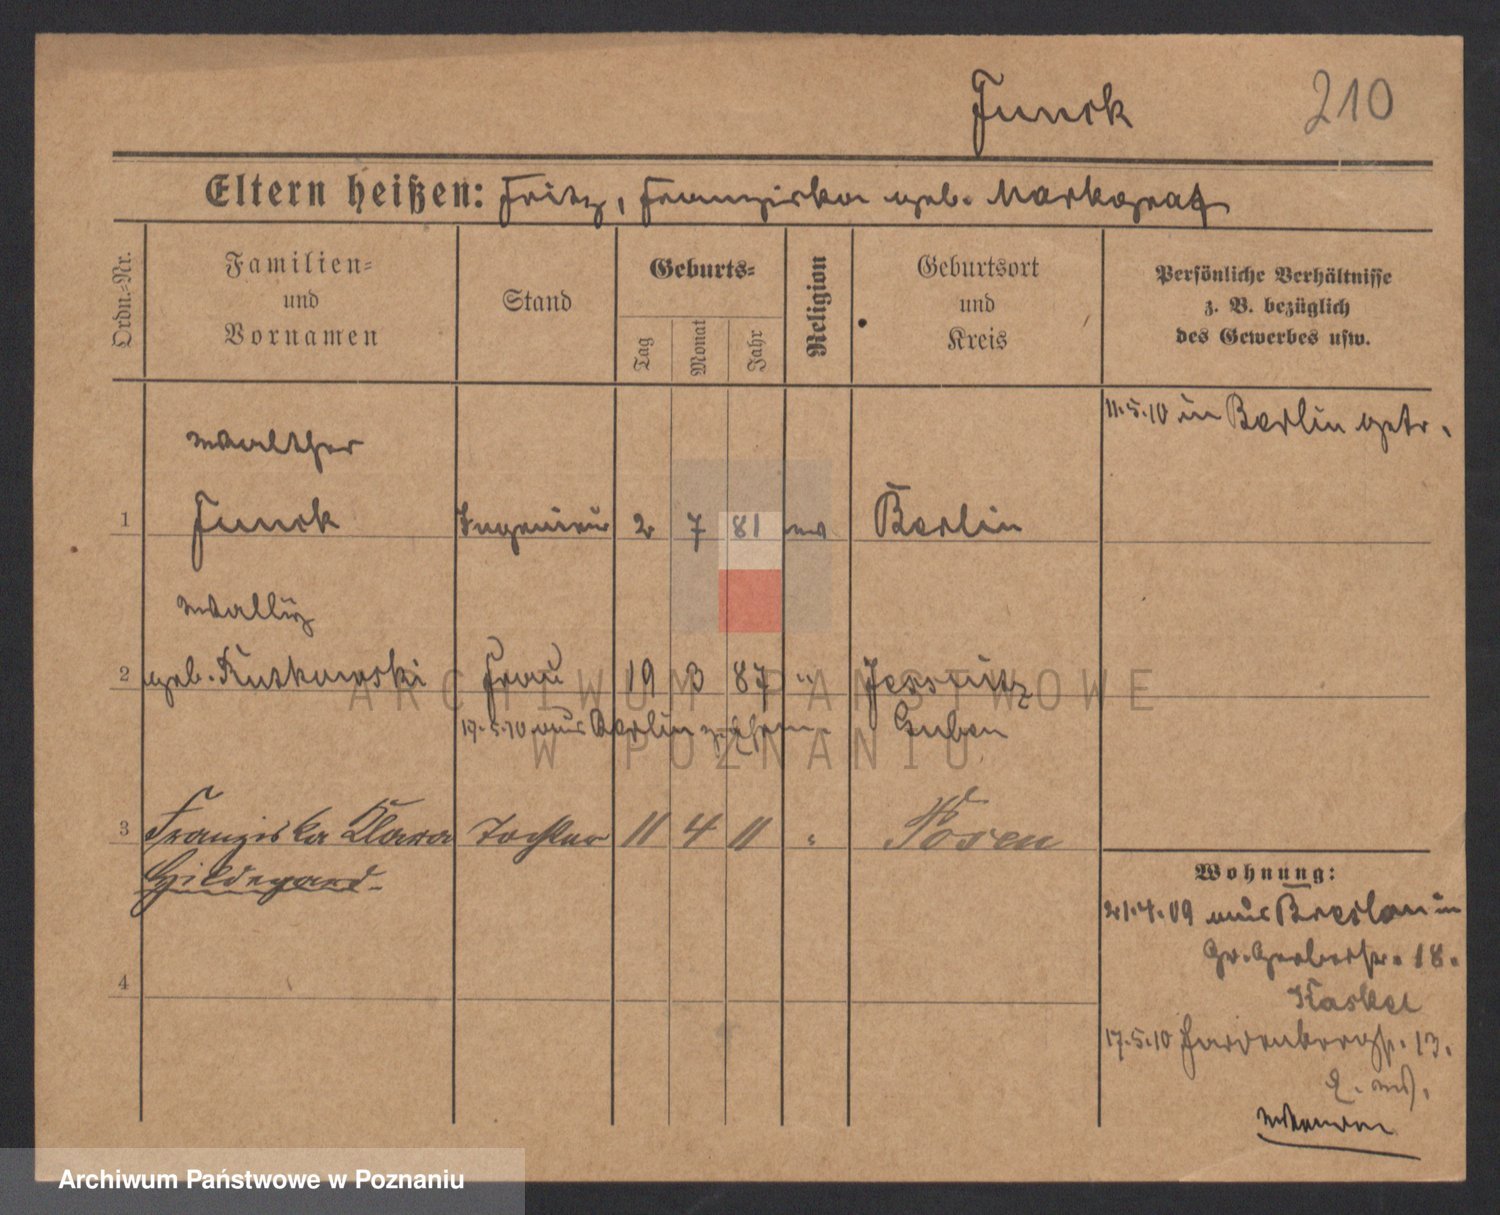 Funck 210
Eltern heißen: Fritz, Franziska geb. Markgraf
Ordn.-Nr.
Familien-
und
Vornamen
Stand
Geburts-
Tag
Monat
Jahr
Religion
Geburtsort
und
Kreis
Persönliche Verhältnisse
z. B. bezüglich
des Gewerbes usw.
11.5.10 in Berlin getr.
Walther
1 Funck Ingenieur 2 7 81 ev Berlin
Wally
2 geb. Kutkowski Frau 19 3 87 " Jessnitz
17.5.10 aus Berlin z. Ehem. Guben
3 Franziska Klara Tochter 11 4 11 " Posen
Hildegard
4
Wohnung:
21.4.09 aus Breslau in
Gr. Gerberstr. 18.
Kaskel
17.5.10 Hardenbergstr. 13.
ARCHIWUM PAŃSTWOWE
W POZNANIU
Archiwum Państwowe w Poznaniu